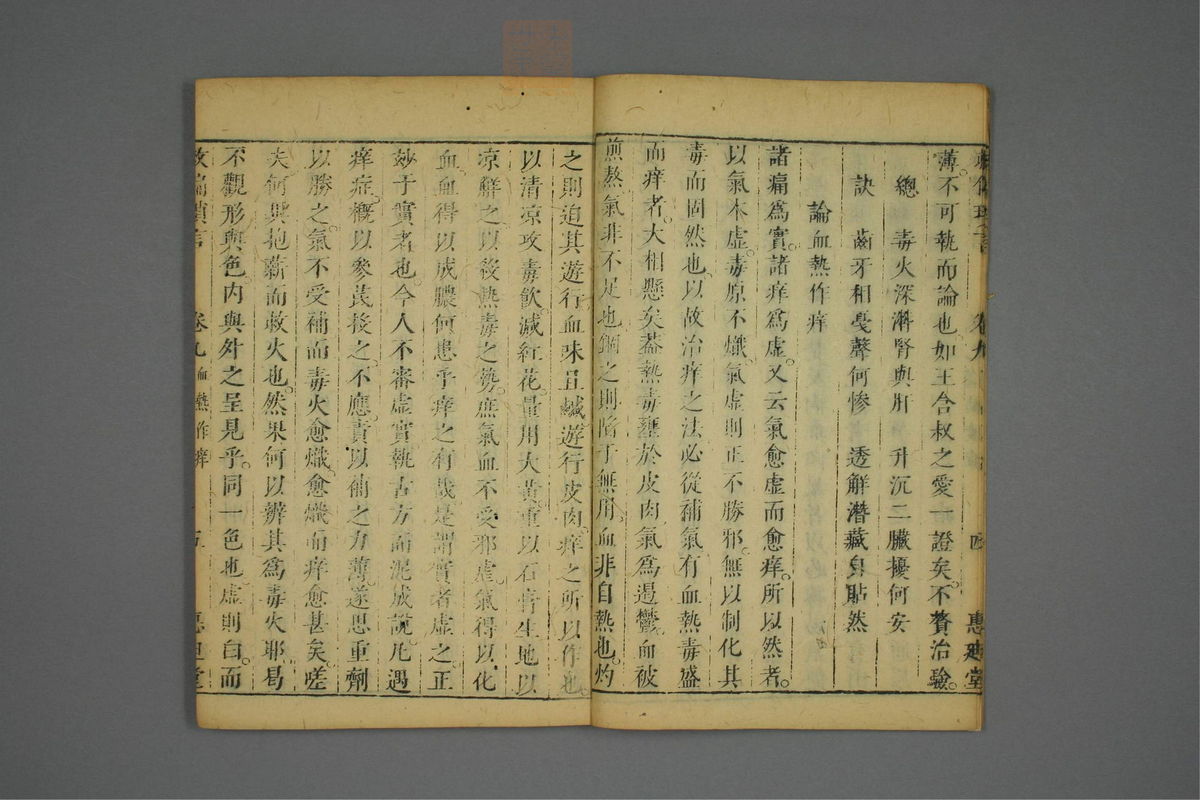 薄不可執而論也如王合叔之愛一證矣不贅治驗
總　毒火深潛腎與肝　升沉二臟擾何安
訣　齒牙相戞聲何慘　透解潛藏自貼然
論血熱作痒
諸痛爲實諸痒爲虛又云氣愈虛而愈痒所以然者
以氣本虛毒原不熾氣虛則正不勝邪無以制化其
毒而固然也以故治痒之法必從補氣有血熱毒盛
而痒者大相懸矣蓋熱毒壅於皮肉氣爲遏鬱血被
煎熬氣非不足也錮之則陷于無用血非自熱也灼
之則迫其遊行血味且鹹遊行皮肉痒之所以作也
以清凉攻毒飲減紅花量用大黃重以石膏生地以
凉解之以後熱毒之勢庶氣血不受邪虐氣得以化
血血得以成膿何患乎痒之有哉是謂實者虛之正
妙于實者也今人不審虛實執古方而泥成說凡遇
痒症概以參芪投之不應責以補之力薄遂思重劑
以勝之氣不受補而毒火愈熾愈熾而痒愈甚矣嗟
夫何異抱薪而救火也然果何以辨其爲毒火耶曷
不觀形與色内與外之呈見乎同一色也虛則白而
救偏瑣言　卷九　血熱作痒　十五　惠迪堂